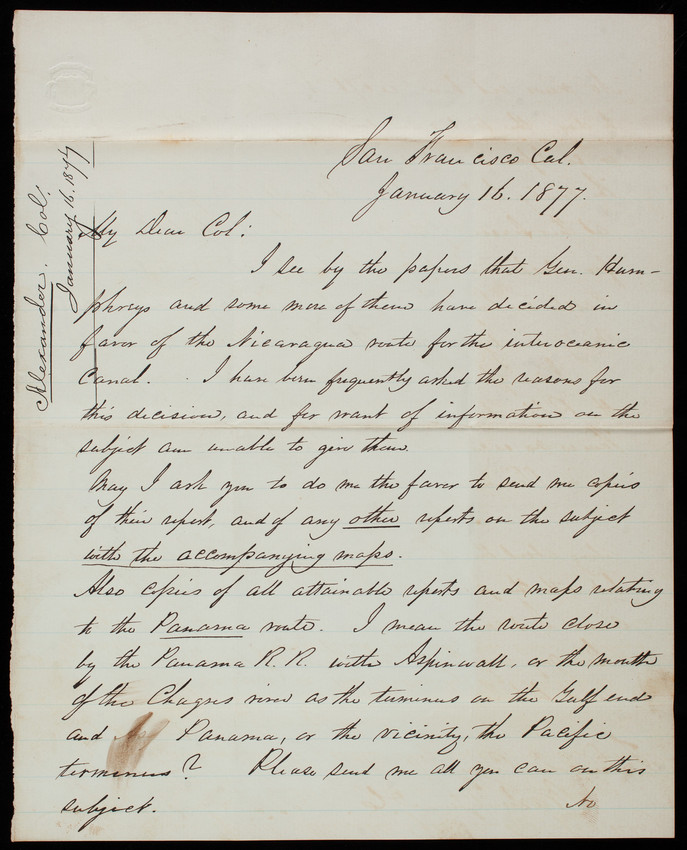 San Francisco Cal.
January 16. 1877.
Alexander. Col.
January 16. 1877
My Dear Col:
I see by the papers that Gen. Hum-
phreys and some more of them have decided in
favor of the Nicaragua route for the interoceanic
Canal. I have been frequently asked the reasons for
this decision, and for want of information on the
subject am unable to give them.
May I ask you to do me the favor to send me copies
of their report, and of any other reports on the subject
with the accompanying maps.
Also copies of all attainable reports and maps relating
to the Panama route. I mean the route close
by the Panama R. R. with Aspinwall, or the mouth
of the Chagres river as the terminus on the Gulf end
and Panama, or the vicinity, the Pacific
terminus? Please send me all you can on this
subject.
No